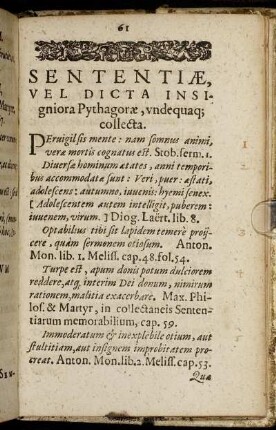 61
SENTENTIÆ,
VEL DICTA INSI-
gniora Pythagoræ, vndequaq;
collecta.
PErvigil sis mente: nam somnus animi,
veræ mortis cognatus est. Stob. serm. 1.
Diversæ hominum ætates, anni tempori-
bus accommodatæ sunt: Veri, puer: æstati,
adolescens: autumno, iuuenis: hyemi senex.
(Adolescentem autem intelligit, puberem:
iuuenem, virum.) Diog. Laërt. lib. 8.
Optabilius tibi sit lapidem temerè projj-
cere, quàm sermonem otiosum. Anton.
Mon. lib. 1. Meliss. cap. 48. fol. 54.
Turpe est, apum donis potum dulciorem
reddere, atq; interim Dei donum, nimirum
rationem, malitia exacerbare. Max. Phi-
los. & Martyr, in collectaneis Senten-
tiarum memorabilium, cap. 59.
Immoderatum & inexplebile otium, aut
stultitiam, aut insignem improbitatem pro-
creat. Anton. Mon. lib. 2. Meliss. cap. 53.
Quæ